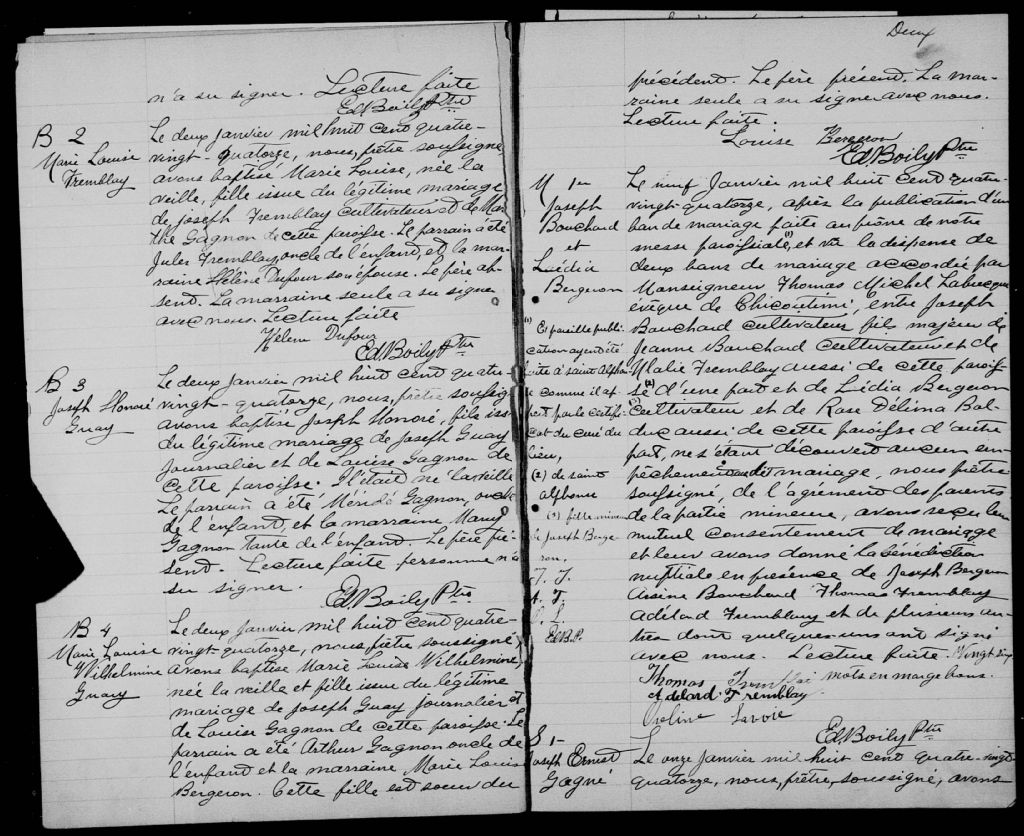 n'a su signer. Lecture faite
Ed Boily Ptre
B 2
Marie Louise
Tremblay
Le deux janvier mil huit cent quatre-
vingt-quatorze, nous, prêtre soussigné,
avons baptisé Marie Louise, née la
veille, fille issue du légitime mariage
de Joseph Tremblay cultivateur et de Mar-
the Gagnon de cette paroisse. Le parrain a été
Jules Tremblay oncle de l'enfant, et la mar-
raine Hélène Dufour son épouse. Le père ab-
sent. La marraine seule a su signer
avec nous. Lecture faite
Hélène Dufour
Ed Boily Ptre
B 3
Joseph Honoré
Guay
Le deux janvier mil huit cent quatre
vingt-quatorze, nous, prêtre soussig
avons baptisé Joseph Honoré, fils iss
du légitime mariage de Joseph Guay
journalier et de Louise Gagnon de
cette paroisse. Il était né la veille
Le parrain a été Méridé Gagnon, oncle
de l'enfant, et la marraine Mary
Gagnon tante de l'enfant. Le père pré-
sent. Lecture faite personne n'a
su signer.
Ed Boily Ptre
B 4
Marie Louise
Wilhelmine
Guay
Le deux janvier mil huit cent quatre-
vingt-quatorze, nous, prêtre soussigné,
avons baptisé Marie Louise Wilhelmine,
née la veille et fille issue du légitime
mariage de Joseph Guay journalier et
de Louise Gagnon de cette paroisse. Le
parrain a été Arthur Gagnon oncle de
l'enfant et la marraine Marie Louise
Bergeron. Cette fille est soeur du
Deux
précédent. Le père présent. La mar-
raine seule a su signer avec nous.
Lecture faite.
Louise Bergeron
Ed Boily Ptre
M 1er
Joseph
Bouchard
et
Laédia
Bergeron
Le neuf Janvier mil huit cent quatre
vingt-quatorze, après la publication d'un
ban de mariage faite au prône de notre
messe paroissiale, (1) et vu la dispense de
deux bans de mariage accordée par
Monseigneur Thomas Michel Labrecque
évêque de Chicoutimi, entre Joseph
Bouchard cultivateur fils majeur de
Jeanne Bouchard cultivateur et de
Malie Tremblay aussi de cette parois-
se (2) d'une part et de Lédia Bergeron
(3) cultivateur et de Rose Délima Bol-
duc aussi de cette paroisse d'autre
part, ne s'étant découvert aucun em-
pêchement au dit mariage, nous prêtre
soussigné, de l'agrément des parents
de la partie mineure, avons reçu leur
mutuel consentement de mariage
et leur avons donné la bénédiction
nuptiale en présence de Joseph Bergeron
Arsène Bouchard Thomas Tremblay
Adélard Tremblay et de plusieurs au-
tres dont quelques uns ont signé
avec nous. Lecture faite. Vingt six
mots en marge bons.
(1) Et pareille publi-
cation ayant été
faite à saint Alphon
se comme il ap
pert par le certifi-
cat du curé du
lieu,
(2) de saint
Alphonse
(3) fille mineure
de Joseph Berge
ron.
T. T.
A. T.
O. L.
Ed. B. P.
Thomas Tremblay
Adelard Tremblay
Oveline Savoie
Ed. Boily Ptre
S 1-
Joseph Ernest
Gagné
Le onze Janvier mil huit cent quatre-vingt
quatorze, nous, prêtre, soussigné, avons